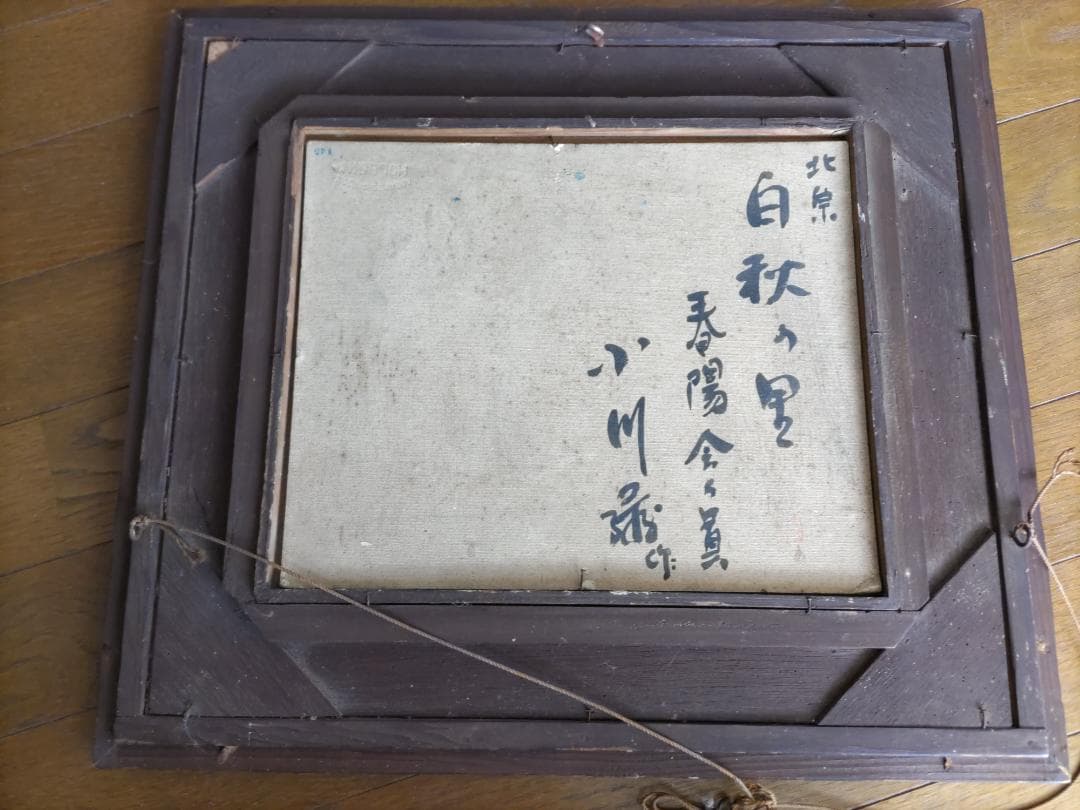 北宗
白秋の里
春陽会々員
小川
作